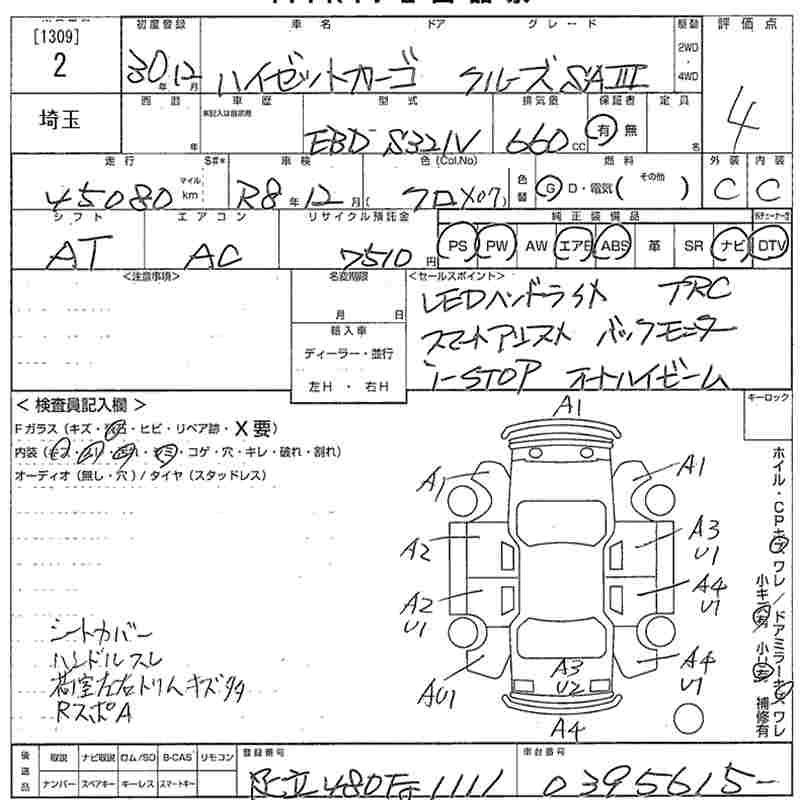 [1309]
2
埼玉
初度登録 車名 ドア グレード 駆動 評価点
30年12月 ハイゼットカーゴ クルーズSAIII 2WD・4WD 4
西暦 車歴 型式 排気量 保証書 定員
年 EBD S321V 660cc 有 無 名
走行 S#* 車検 色(Col.No) 燃料 外装 内装
45080 マイル km R8年12月 ( クロ X07) 色替 G D・電気( その他 ) C C
シフト エアコン リサイクル預託金 純正装備品
AT AC 7510円 PS PW AW エアB ABS 革 SR ナビ DTV
<注意事項> 名変期限 <セールスポイント>
月 日
輸入車
ディーラー・並行
左H ・ 右H
LEDヘッドライト TRC
スマートアシスト バックモニター
i-STOP オートハイビーム
<検査員記入欄> キーロック
Fガラス(キズ・飛石・ヒビ・リペア跡・X要)
内装(キズ・スリ・汚れ・シミ・コゲ・穴・キレ・破れ・割れ)
オーディオ(無し・穴)/タイヤ(スタッドレス)
シートカバー
ハンドルスレ
荷室左右トリムキズ
RスポA
A1
A1 A1
A2 A3 U1
A2 U1 A4 U1
AU1 A3 U2 A4 U1
A4
ホイル・CPキズ ワレ/ドアミラーキズ ワレ
小キズ有 小U有 補修有
後送品 取説 ナビ取説 ロム/SD B-CAS リモコン 登録番号 車台番号
ナンバー スペアキー キーレス スマートキー 足立480 1111 0395615-